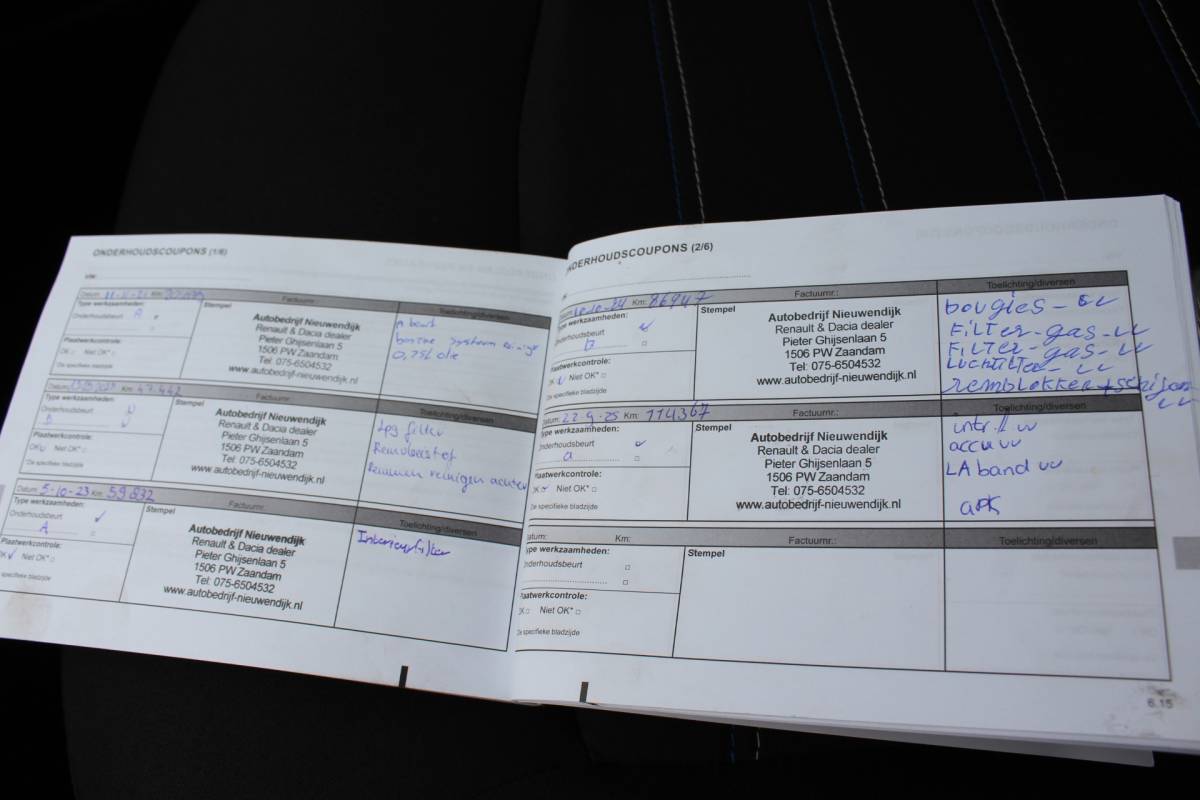 ONDERHOUDSCOUPONS (1/6)
VIN:
Datum: Km: Factuurnr.:
Type werkzaamheden:
Onderhoudsbeurt
A
Plaatwerkcontrole:
OK □ Niet OK* □
De specifieke bladzijde
Stempel
Autobedrijf Nieuwendijk
Renault & Dacia dealer
Pieter Ghijsenlaan 5
1506 PW Zaandam
Tel: 075-6504532
www.autobedrijf-nieuwendijk.nl
Toelichting/diversen
A beurt
0,75L olie
Datum: Km: 47.442 Factuurnr.:
Type werkzaamheden:
Onderhoudsbeurt
B
Plaatwerkcontrole:
OK Niet OK* □
De specifieke bladzijde
Stempel
Autobedrijf Nieuwendijk
Renault & Dacia dealer
Pieter Ghijsenlaan 5
1506 PW Zaandam
Tel: 075-6504532
www.autobedrijf-nieuwendijk.nl
Toelichting/diversen
Lpg filter
Remvloeistof
Remmen reinigen achter
Datum: 5-10-23 Km: 59832 Factuurnr.:
Type werkzaamheden:
Onderhoudsbeurt ✓
A
Plaatwerkcontrole:
OK ✓ Niet OK* □
specifieke bladzijde
Stempel
Autobedrijf Nieuwendijk
Renault & Dacia dealer
Pieter Ghijsenlaan 5
1506 PW Zaandam
Tel: 075-6504532
www.autobedrijf-nieuwendijk.nl
Toelichting/diversen
Interieurfilter
ONDERHOUDSCOUPONS (2/6)
Datum: 10-24 Km: 86947 Factuurnr.:
Type werkzaamheden:
Onderhoudsbeurt ✓
B □
Plaatwerkcontrole:
OK Niet OK* □
De specifieke bladzijde
Stempel
Autobedrijf Nieuwendijk
Renault & Dacia dealer
Pieter Ghijsenlaan 5
1506 PW Zaandam
Tel: 075-6504532
www.autobedrijf-nieuwendijk.nl
Toelichting/diversen
bougies - vv
Filter-gas-vv
Filter-gas-vv
Luchtfilter - vv
remblokken + schijven
vv
Datum: 22-9-25 Km: 114367 Factuurnr.:
Type werkzaamheden:
Onderhoudsbeurt ✓
a □
Plaatwerkcontrole:
OK Niet OK* □
De specifieke bladzijde
Stempel
Autobedrijf Nieuwendijk
Renault & Dacia dealer
Pieter Ghijsenlaan 5
1506 PW Zaandam
Tel: 075-6504532
www.autobedrijf-nieuwendijk.nl
Toelichting/diversen
intr.fl vv
accu vv
LA band vv
apk
Datum: Km: Factuurnr.:
Type werkzaamheden:
Onderhoudsbeurt □
□
Plaatwerkcontrole:
OK □ Niet OK* □
De specifieke bladzijde
Stempel
Toelichting/diversen
6.15